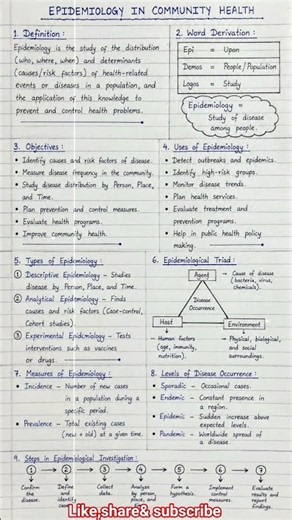 EPIDEMIOLOGY IN COMMUNITY HEALTH
1. Definition :
Epidemiology is the study of the distribution
(who, where, when) and determinants
(causes/risk factors) of health-related
events or diseases in a population, and
the application of this knowledge to
prevent and control health problems.
2. Word Derivation :
Epi = Upon
Demos = People/Population
Logos = Study
Epidemiology =
Study of disease
among people.
3. Objectives :
• Identify causes and risk factors of disease.
• Measure disease frequency in the community.
• Study disease distribution by Person, Place,
and Time.
• Plan prevention and control measures.
• Evaluate health programs.
• Improve community health.
4. Uses of Epidemiology :
• Detect outbreaks and epidemics.
• Identify high-risk groups.
• Monitor disease trends.
• Plan health services.
• Evaluate treatment and
prevention programs.
• Help in public health policy
making.
5. Types of Epidemiology :
① Descriptive Epidemiology - Studies
disease by Person, Place, and Time.
② Analytical Epidemiology - Finds
causes and risk factors (Case-control,
Cohort studies).
③ Experimental Epidemiology - Tests
interventions such as vaccines
or drugs.
6. Epidemiological Triad :
Agent
→ Cause of disease
(bacteria, virus,
chemicals).
Disease
Occurrence
Host
Environment
→ Human factors
(age, immunity,
nutrition).
→ Physical, biological,
and social
surroundings.
7. Measures of Epidemiology :
• Incidence - Number of new cases
in a population during a
specific period.
• Prevalence - Total existing cases
(new + old) at a given time.
8. Levels of Disease Occurrence :
• Sporadic - Occasional cases.
• Endemic - Constant presence in
a region.
• Epidemic - Sudden increase above
expected levels.
• Pandemic - Worldwide spread of
a disease.
9. Steps in Epidemiological Investigation :
① → ② → ③ → ④ → ⑤ → ⑥ → ⑦
Confirm
the
disease.
Define
and
identify
cases.
Collect
data.
Analyze
by person,
place, and
Form a
hypothesis.
Implement
control
measures.
Evaluate
results and
report
findings.
Like,share& subscribe